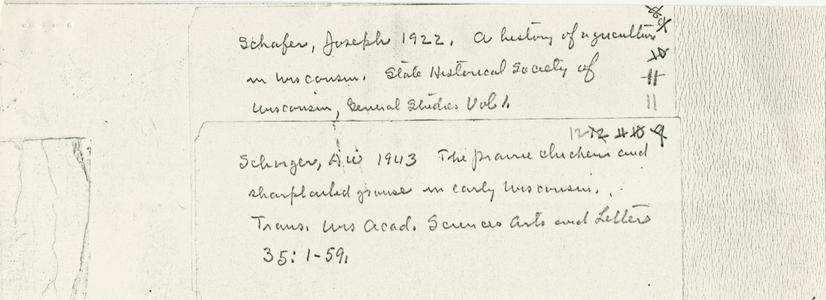 Schafer, Joseph 1922. A history of agriculture
in Wisconsin. State Historical Society of
Wisconsin, General Studies Vol 1.
11
12 12 11 10 9
Schorger, A.W. 1943 The prairie chicken and
sharptailed grouse in early Wisconsin.
Trans. Wis Acad. Sciences Arts and Letters
35: 1-59.